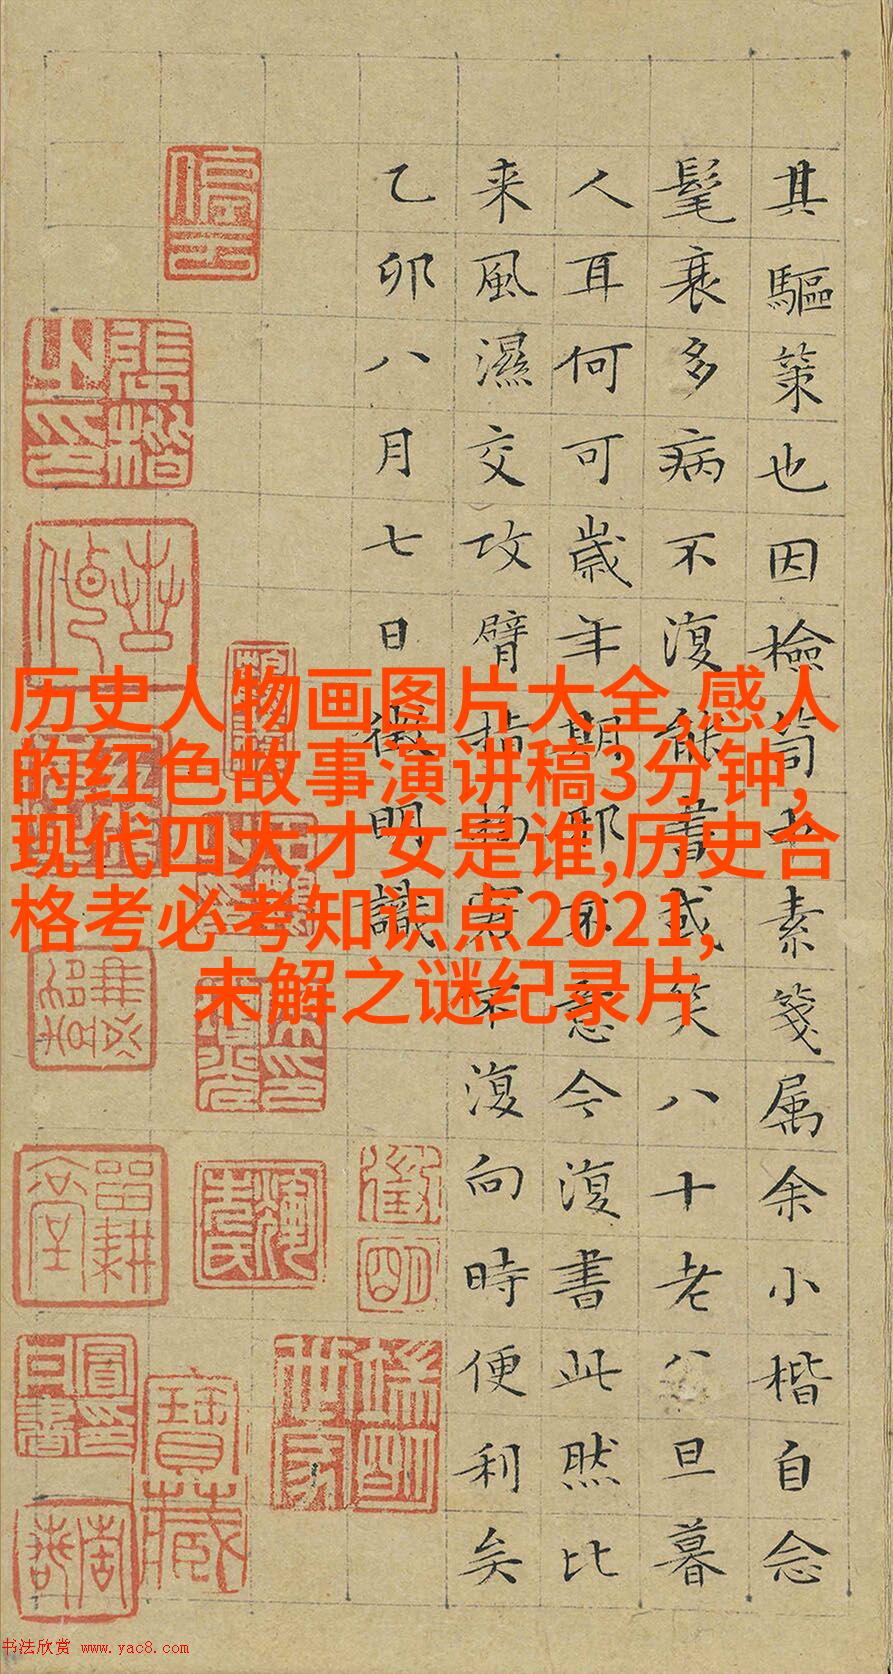 其驅策也因檢笥中素箋属余小楷自念
髦衰多病不復能書或笑八十老公旦暮
人耳何可歲年期耶不意今復書此然比
来風濕交攻臂指拘窘不復向時便利矣
乙卯八月七日徵明識
停雲
張楷之印
徵明
寶藏
历史人物画图片大全,感人
的红色故事演讲稿3分钟,
现代四大才女是谁,历史合
格考必考知识点2021,
未解之谜纪录片
书法欣赏 www.yac8.com